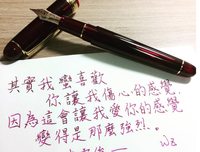 其實我蠻喜歡
你讓我傷心的感覺，
因為這會讓我愛你的感覺
變得是那麼強烈。